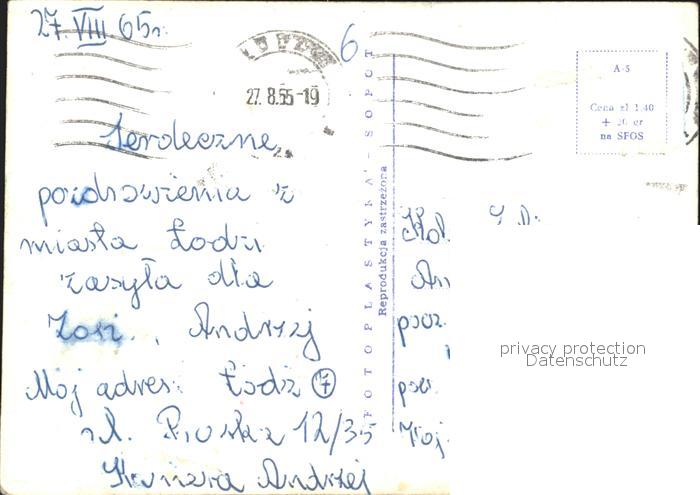 27 VIII 65r.
6
27. 8.65-19
A-5
Cena zł 1.40
+ 20 gr
na SFOS
Serdeczne
pozdrowienia z
miasta Łodzi
zasyła dla
Zosi., Andrzej
Mój adres: Łódź ⑦
ul. 12/35
Andrzej
"FOTOPLASTYKA" - SOPOT
Reprodukcja zastrzeżona
Kol.
An
pocz.
pow.
Woj.
privacy protection
Datenschutz